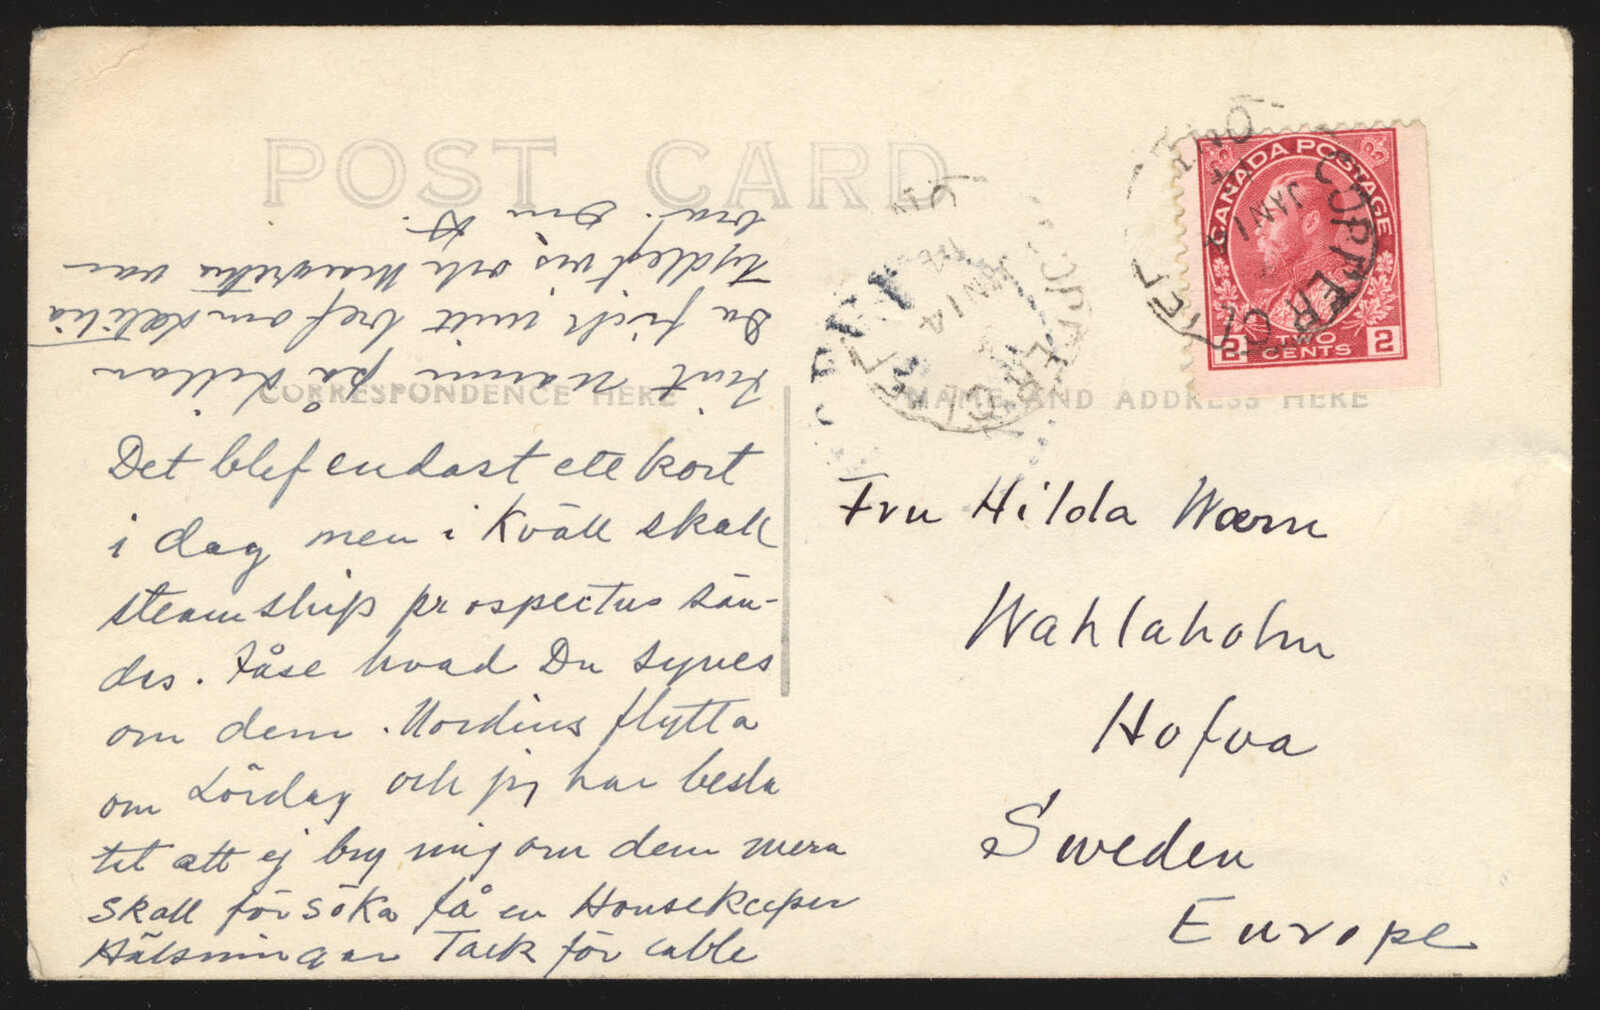 POST CARD
CORRESPONDENCE HERE
NAME AND ADDRESS HERE
CANADA POSTAGE
2 TWO CENTS 2
COPPER CLIFF
ONT
JAN 14
COPPER CLIFF
JAN 14
ON
Det blef endast ett kort
i dag men i Kväll skall
steamship prospectus sän-
das. Fåse hvad Du synes
om dem. Nordins flytta
om Lördag och jag har beslu
tit att ej bry mig om dem mera
skall försöka få en Housekeeper
Hälsningar Tack för cable
namn på
Du fick mitt bref om
tydligtvis och Margretha var
bra. Din
Fru Hilda Wærn
Wahlaholm
Hofva
Sweden
Europe